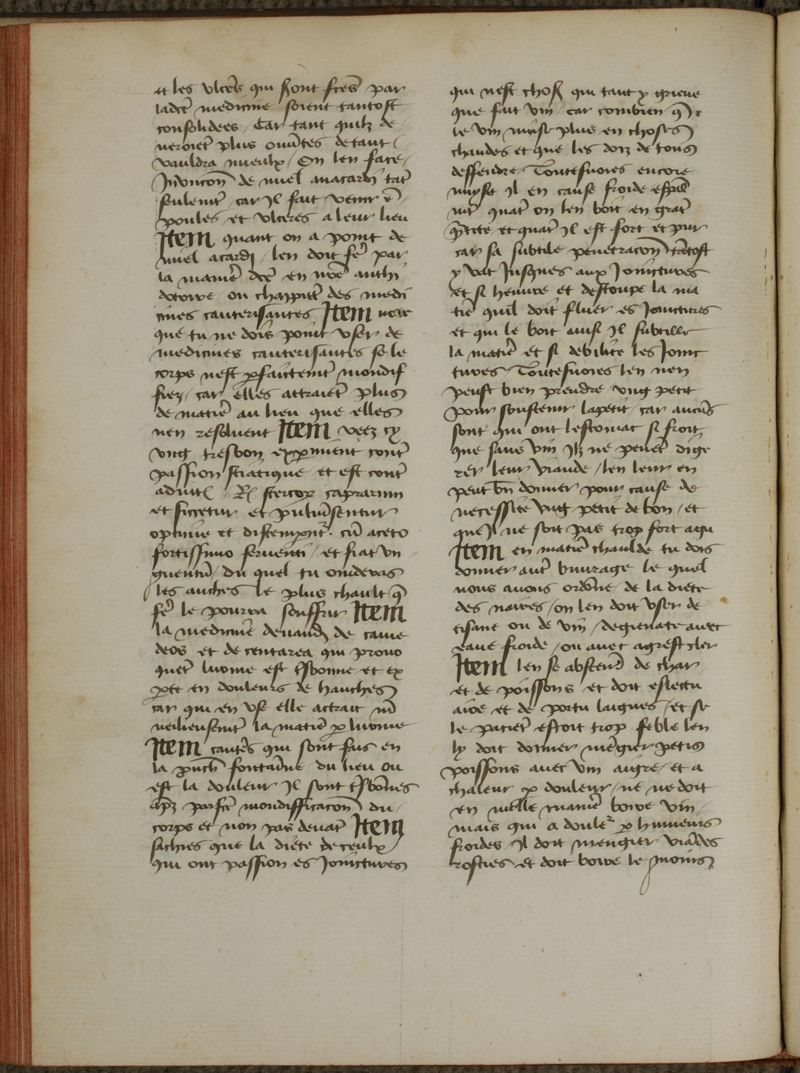 et les ulceres qui sont fces par
ladce medicine soient tantost
consolidees / Car tant quilz de
vauldra mieulx / On len face
de miel anacardi
seulemt / car Il fait venir
poules et ulceres a leur lieu
Item quant on a point de
miel acardj / len doit fe par
la manie dce en nre anthi
dotoire ou chappit des medi
cines cauterisantes Item note
que tu ne dois point user de
medicines cauterisantes se le
corps nest pfaictemt mondif
fiez / car elles attraiet plus
de matie au lieu que elles
nen resoluent Item veez cy
ung tresbon expiment cont
passion sciatique et est cont
Rx stercor caprarum
et siccetur et puluisentur
optime et distempent cu aceto
fortissimo feruenti / et fiat vn
guentu / du quel tu oindras
les anches le plus chault q
fe le pourra souffrir Item
la medicine deuand de came
deos et de centarea qui prouo
quet luome est tsbonne et ex
pte en douleurs de hanches
car qui en use elle attrait
ueilleusemt la matie p luome
Item cautes qui sont fais en
la pnch fontaine du lieu ou
est la douleur Il sont tsbones
apz parfce mondifficacon du
corps et non pas deuat Item
saches que la diete de ceulx
qui ont passion es Joinctures
qui nest chose qui tant y grieue
que fait vin car combien q
le vin nuyse plus en choses
chaudes et que les doiz de tous
deffendre Toutesuoies encore
nuyst Il en cause froide espial
mt quat on len boit en grat
qtite et quat Il est fort et pur
car sa subtile penetracon tatost
y vat Jusques aux Joinctures
et si heurte et destoupe la ma
tie quil doit fluer es Joinctures
et qui le boit ainsi Il subtille
la matie et si debilite les Joinc
tures Toutesuoies len nen
peust bien prendre ung petit
pour soustenir lapetit car aucus
sont qui ont lestomac si froit
que sans vin Ilz ne peuet dige
rer leur viande / len leur en
peut bn donner pour cause de
necessite ung petit de bon / et
quil ne soit pas trop fort aqu
Item en matie chaulde tu dois
donner aut buurage le quel
nous auons ordone de la diete
des nares / on len doit user de
tisane ou de vin / auec
eaue froide / ou auec
Item len se abstend de char
et de poissons et doit eslectu
aire et de portu laigues / et se
le paciet estoit trop feble len
ly doit donner mengier petis
poissons auec vin aigre / et a
chaleur p douleur / ne ne doit
en nulle manie boire vin /
mais qui a doule p humeurs
froides Il doit mengier viades
rosties et doit boire le moins